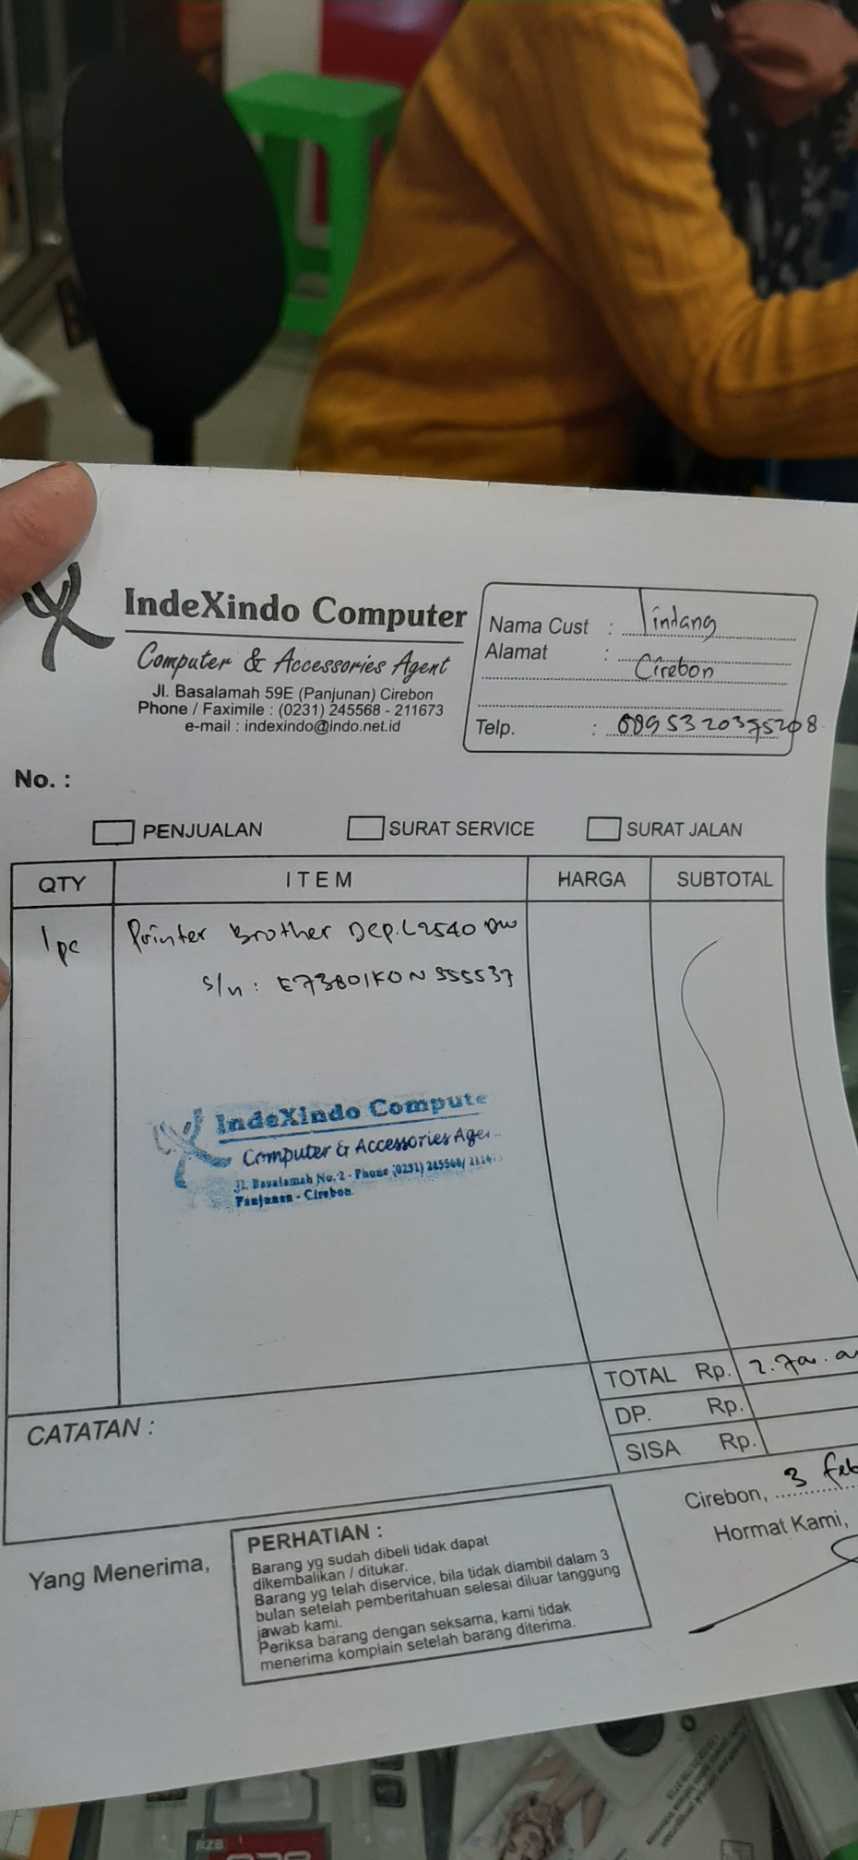 IndeXindo Computer
Computer & Accessories Agent
Jl. Basalamah 59E (Panjunan) Cirebon
Phone / Faximile : (0231) 245568 - 211673
e-mail : indexindo@indo.net.id
Nama Cust :
Alamat : Cirebon
Telp. : 0895320375208
No. :
PENJUALAN SURAT SERVICE SURAT JALAN
QTY ITEM HARGA SUBTOTAL
1 pc Printer Brother DCP.L2540 DW
S/n : E73801K0N555537
IndeXindo Compute
Computer & Accessories Age
Jl. Basalamah No. 2 - Phone (0231) 245568/ 2114
Panjunan - Cirebon
TOTAL Rp.
DP. Rp.
SISA Rp.
CATATAN :
Cirebon, 3 feb
Hormat Kami,
Yang Menerima,
PERHATIAN :
Barang yg sudah dibeli tidak dapat
dikembalikan / ditukar.
Barang yg telah diservice, bila tidak diambil dalam 3
bulan setelah pemberitahuan selesai diluar tanggung
jawab kami.
Periksa barang dengan seksama, kami tidak
menerima komplain setelah barang diterima.